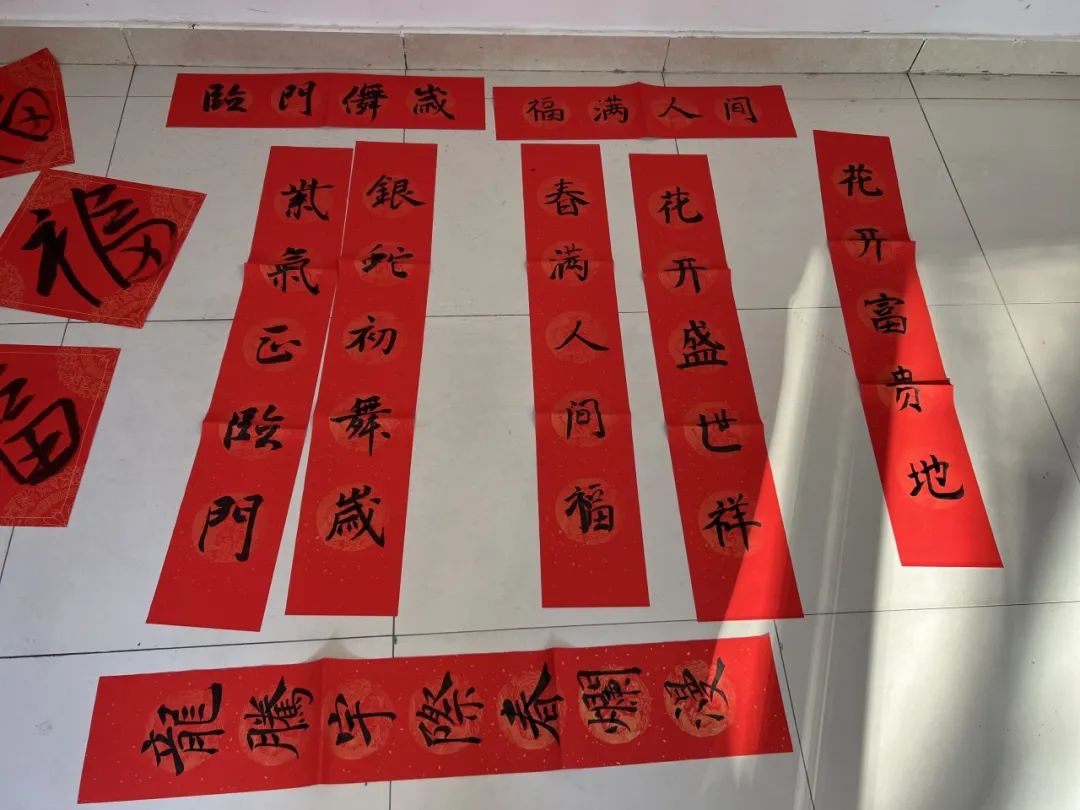 臨門儛歲
福满人间
福
福
福
紫氣正臨門
銀蛇初舞歲
春满人间福
花开盛世祥
花开富贵地
龍騰宇際春爛漫